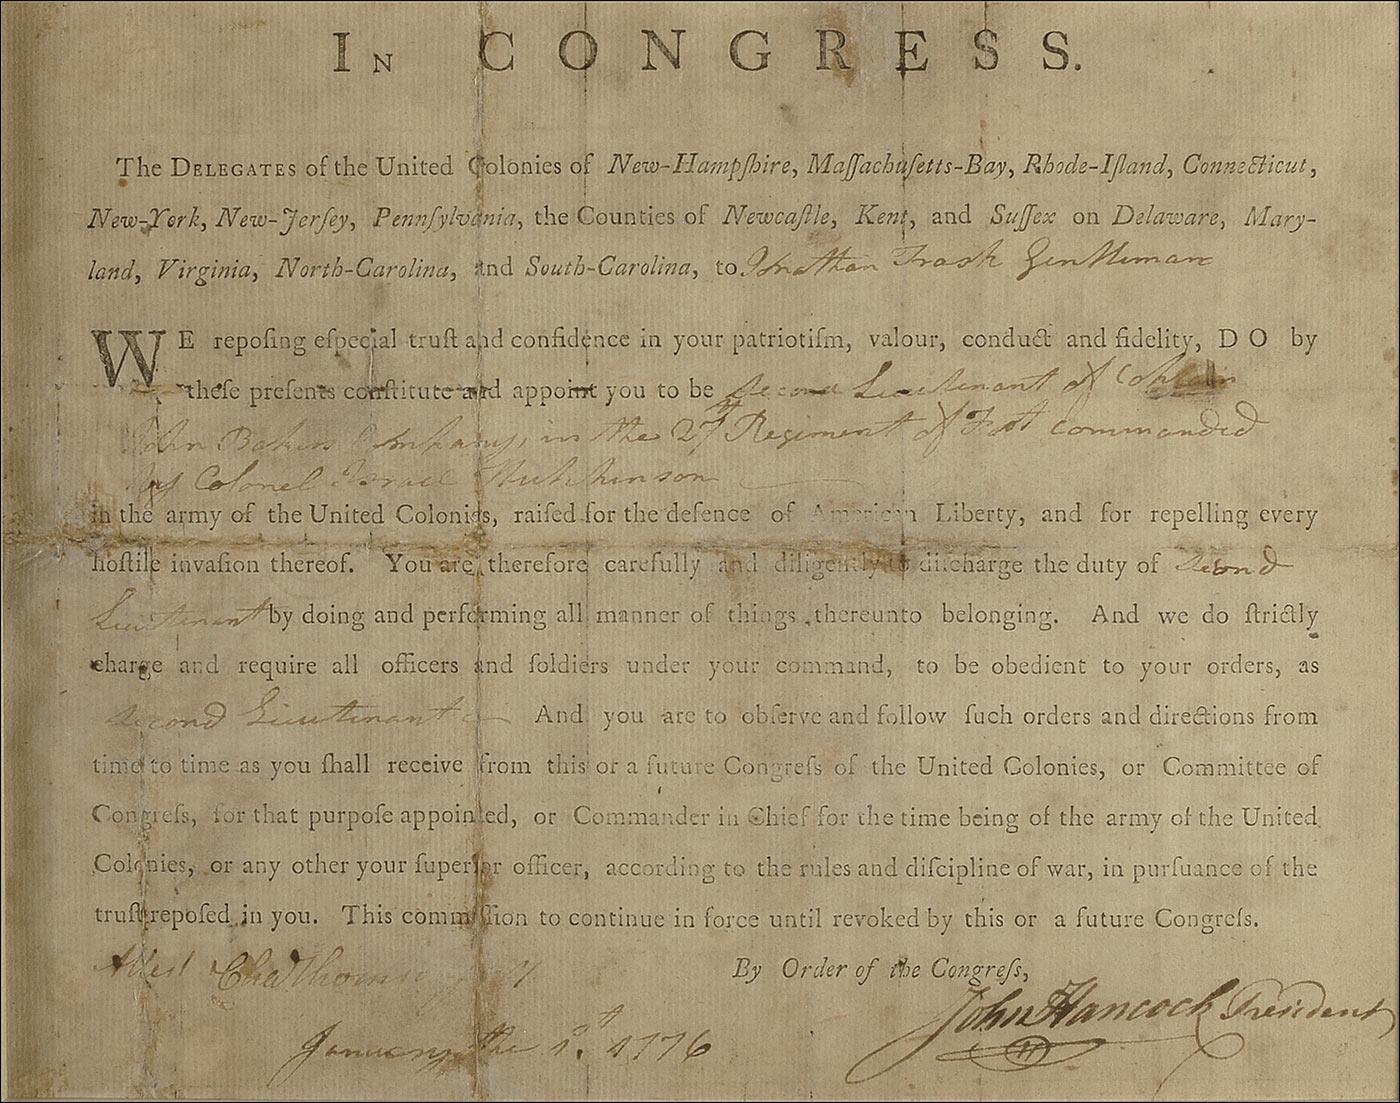 In CONGRESS.
The DELEGATES of the United Colonies of New-Hampſhire, Maſſachuſetts-Bay, Rhode-Iſland, Connecticut,
New-York, New-Jerſey, Pennſylvania, the Counties of Newcaſtle, Kent, and Suſſex on Delaware, Mary-
land, Virginia, North-Carolina, and South-Carolina, to Jonathan Trask Gentleman
WE repoſing eſpecial truſt and confidence in your patriotiſm, valour, conduct and fidelity, DO by
theſe preſents conſtitute and appoint you to be Second Lieutenant of Captain
John Bakers Company, in the 27th Regiment of Foot commanded
by Colonel Israel Hutchinson
in the army of the United Colonies, raiſed for the defence of American Liberty, and for repelling every
hoſtile invaſion thereof. You are therefore carefully and diligently to diſcharge the duty of Second
Lieutenant by doing and performing all manner of things thereunto belonging. And we do ſtrictly
charge and require all officers and ſoldiers under your command, to be obedient to your orders, as
Second Lieutenant And you are to obſerve and follow ſuch orders and directions from
time to time as you ſhall receive from this or a future Congreſs of the United Colonies, or Committee of
Congreſs, for that purpoſe appointed, or Commander in Chief for the time being of the army of the United
Colonies, or any other your ſuperior officer, according to the rules and diſcipline of war, in purſuance of the
truſt repoſed in you. This commiſſion to continue in force until revoked by this or a future Congreſs.
By Order of the Congreſs,
Attest Cha Thomson
John Hancock President
January the 1st. 1776